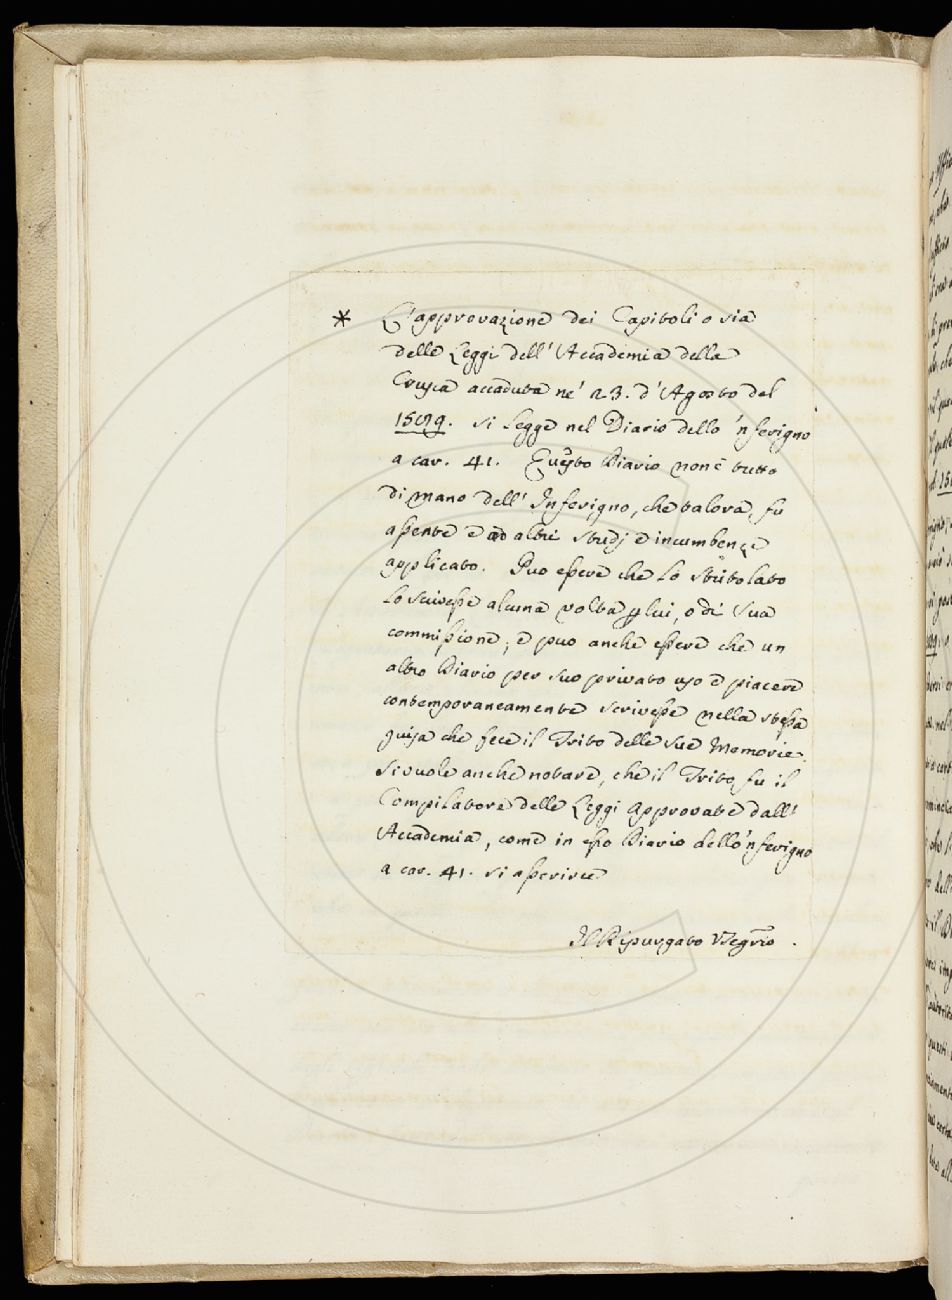 * L'approvazione dei Capitoli o sia
delle Leggi dell'Accademia della
Crusca accaduta ne' 23. d'Agosto del
1589. si legge nel Diario dello 'nferigno
a car. 41. Questo Diario non è tutto
di mano dell'Inferigno, che talora fu
assente e ad altri studj e incumbenze
applicato. Può essere che lo Stritolato
lo scrivesse alcuna volta per lui, o di sua
commissione; e può anche essere che un
altro Diario per suo privato uso e piacere
contemporaneamente scrivesse nella stessa
guisa che fece il Trito delle sue Memorie.
Si vuole anche notare, che il Trito fu il
Compilatore delle Leggi approvate dall'
Accademia, come in esso Diario dello 'nferigno
a car. 41. si asserisce
Il Ripurgato Segrio.